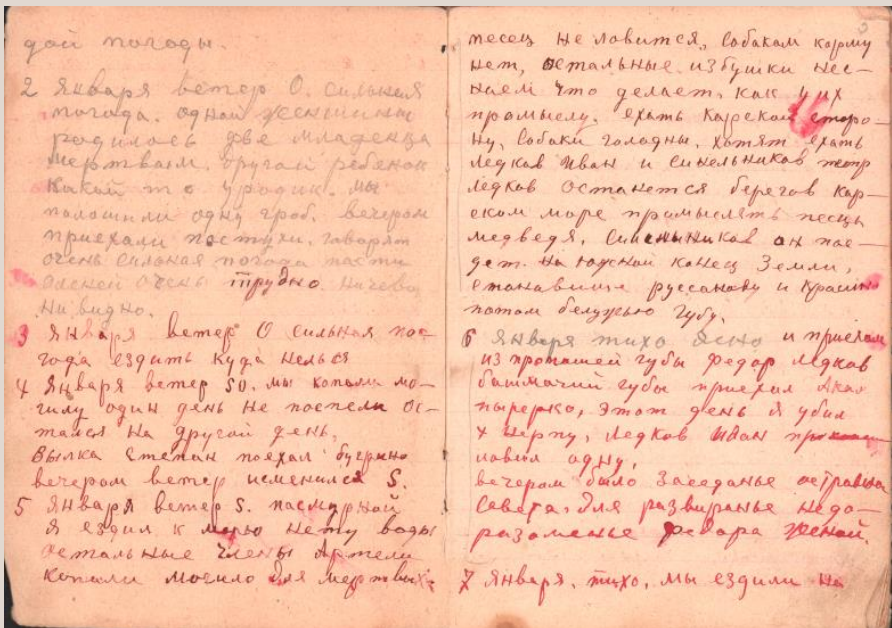 дой погоды.
2 Января ветер О. сильная
погода. одной женьшины
родилось две младенца
мертвым. другой ребенок
какой то уродик. мы
полошили одну гроб. вечером
приехали пастухи. говорят
очень сильная погода пасти
оленей очень трудно. ничево
ни видно.
3 Января ветер О сильная пог-
года ездить куда нельзя
4 Января ветер SO. мы копали мо-
гилу один день не поспели ос-
тался на другой день.
Вылка Степан поехал бугрино
вечером ветер исменился S.
5 Января ветер S. пасмурной
я ездил к морю нету воды
остальные члены Артели
копали могило для мертвых.
песец не ловится, собакам корму
нет, остальные избушки нес-
наем что делает, как у их
промыслу. ехать Карской сторо-
ну, собаки голодны. хотят ехать
Ледков Иван и Синельников
Ледков останется берегов Кар-
ском море промыслять песцы
медведя, Синельников он пое-
дет на южной конец Земли,
становище руссанову и Красино
потом белужью губу.
6 Января тихо ясно и приехал
из пропашей губы Федор Ледков
башмачий губы приехал Яков
пырерко, этот день я убил
х нерпу, Ледков Иван
ловил одну,
вечером было заседанье островно
Совета. для развиранье недо-
разоменье Федора женой.
7 Января. тихо, мы ездили на